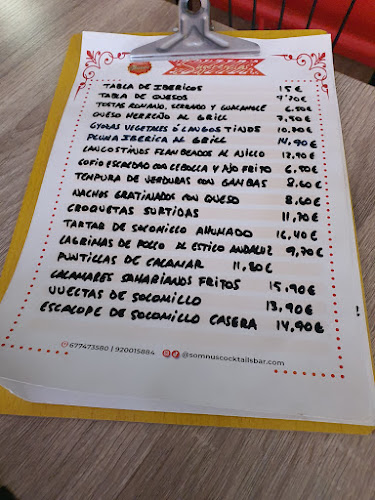 Sugerencias
TABLA DE IBERICOS 15 €
TABLA DE QUESOS 9'70 €
TOSTAS ROMANO, SERRANO Y GUACAMOLE 6.50€
QUESO HERREÑO AL GRILL 7,50€
GYOZAS VEGETALES Ó LANGOSTINOS 10.80€
PLUMA IBERICA AL GRILL 14,90€
LANGOSTINOS FLAMBEADOS AL AJILLO 12,90€
GOFIO ESCALDAO CON CEBOLLA Y AJO FRITO 6,50€
TEMPURA DE VERDURAS CON GAMBAS 8.60€
NACHOS GRATINADOS CON QUESO 8.60€
CROQUETAS SURTIDAS 11,70€
TARTAR DE SOLOMILLO AHUMADO 16,40€
LAGRIMAS DE POLLO AL ESTILO ANDALUZ 9,70€
PUNTILLAS DE CALAMAR 11,80€
CALAMARES SAHARIANOS FRITOS 15,90€
VUELTAS DE SOLOMILLO 13,90€
ESCALOPE DE SOLOMILLO CASERA 14,90€
677473580 | 920015884 @somnuscocktailsbar.com